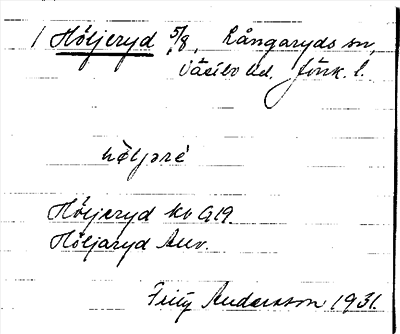 / Höljeryd 5/8, Långaryds sn,
Västbo hd. Jönk. l.
höljəré
Höljeryd kv G19.
Höljaryd Anv.
Fritz Andersson 1931.